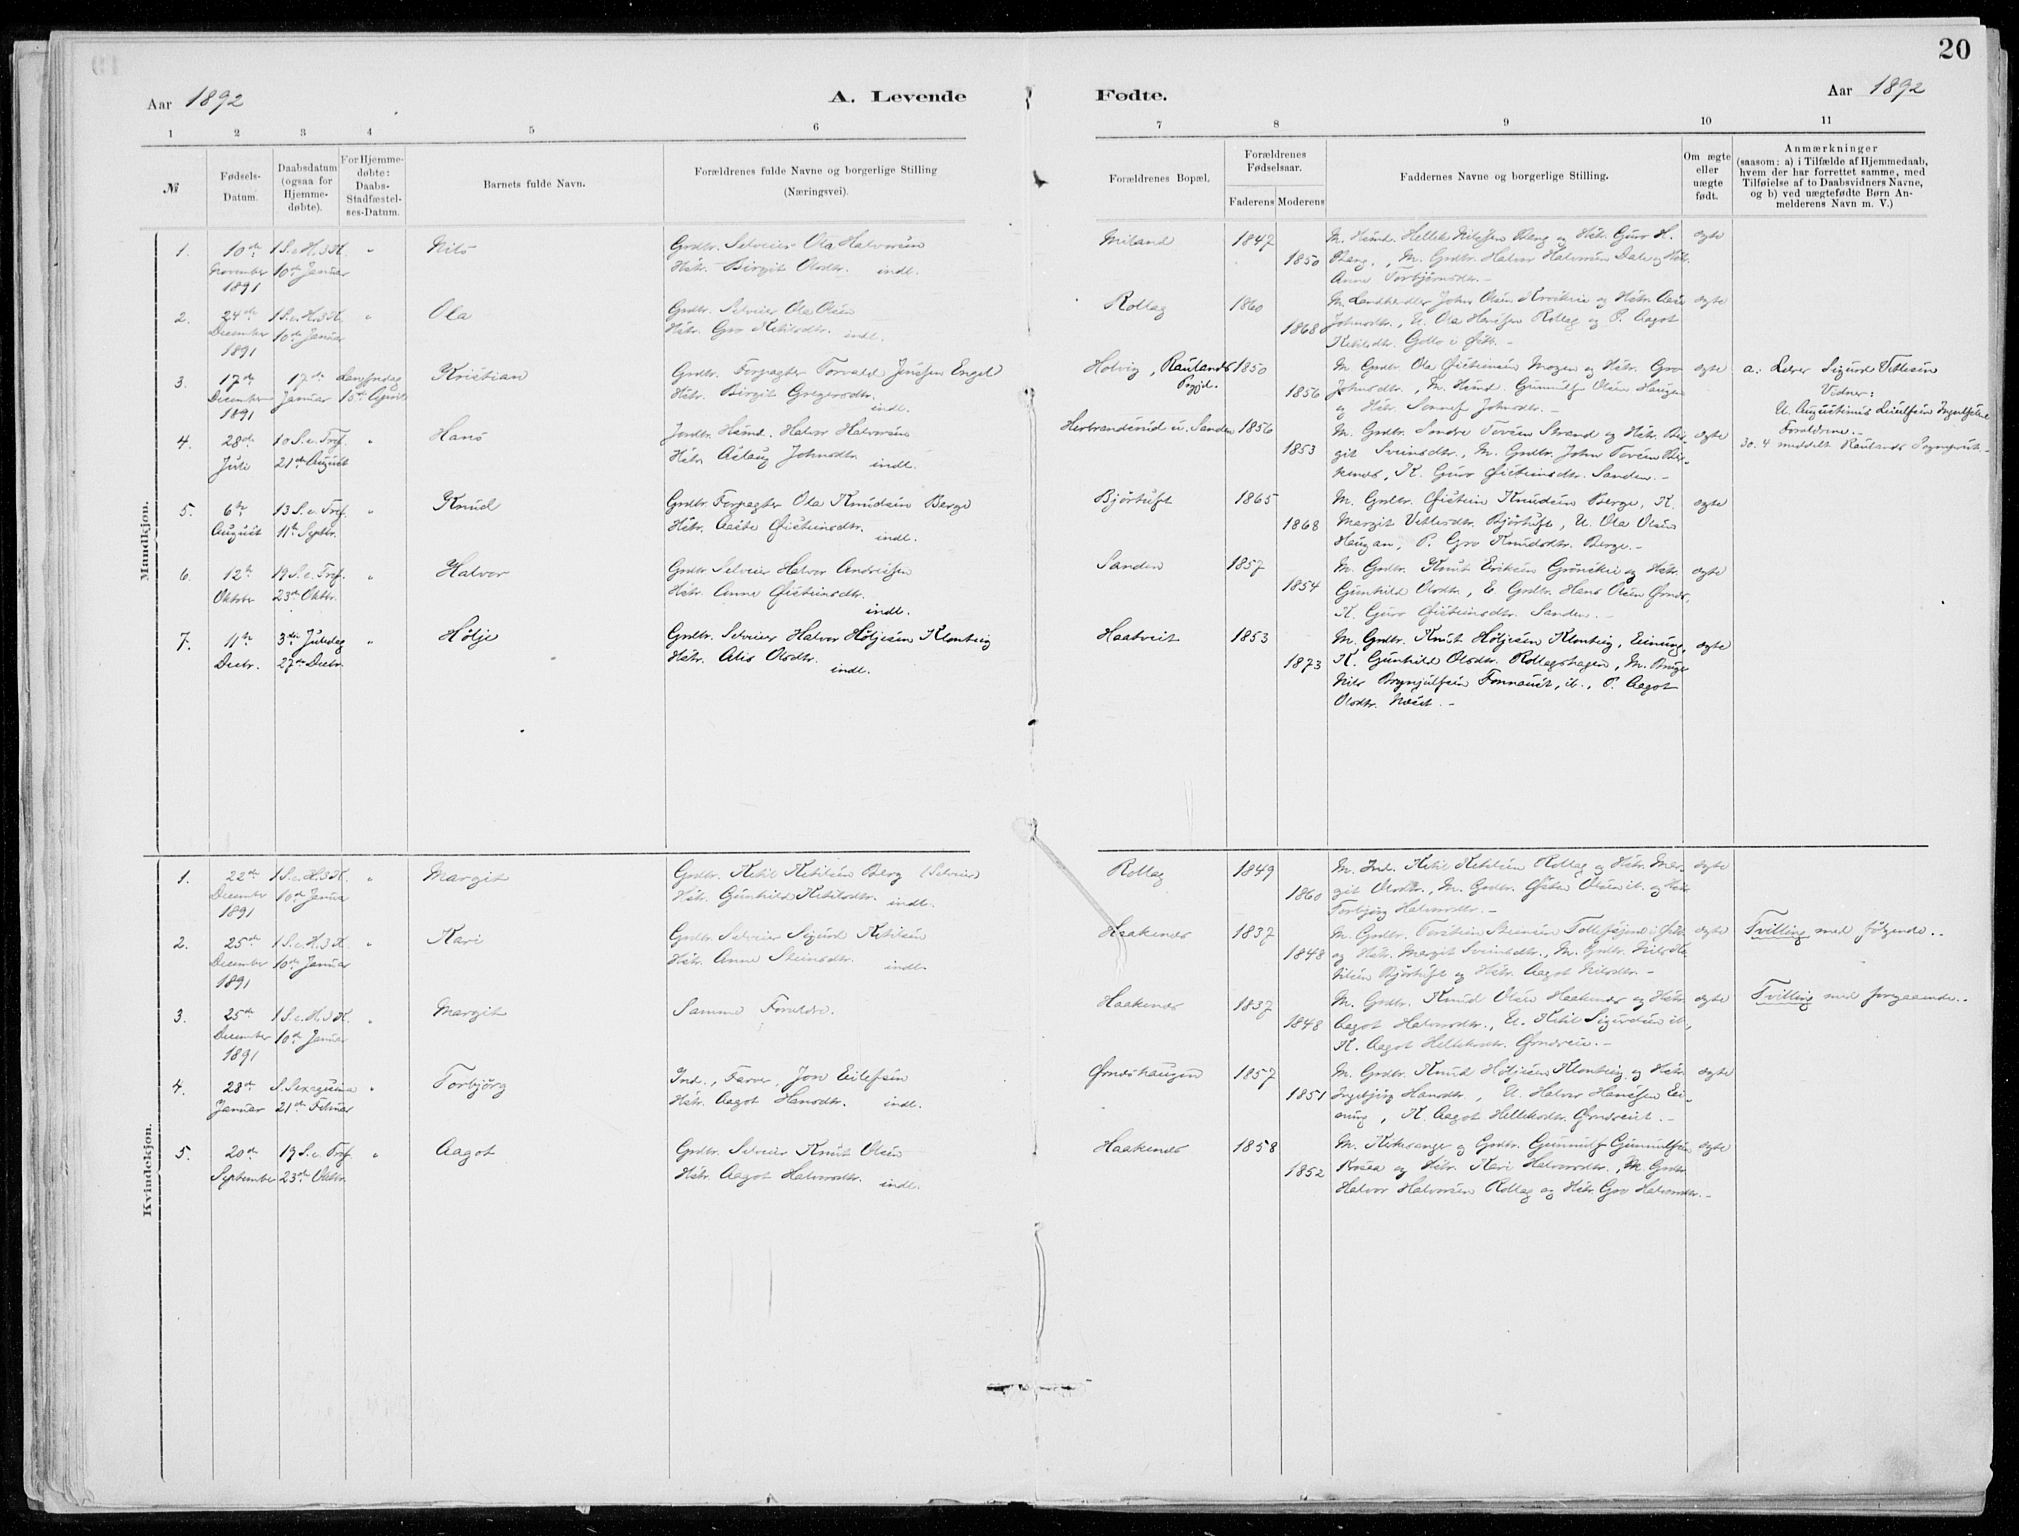 20
Aar 1892
A. Levende
Fødte.
Aar 1892
1 2 3 4 5 6 7 8 9 10 11
№
Fødsels-
Datum.
Daabsdatum
(ogsaa for
Hjemme-
døbte).
For Hjemme-
døbte:
Daabs-
Stadfæstel-
ses-Datum.
Barnets fulde Navn.
Forældrenes fulde Navne og borgerlige Stilling
(Næringsvei).
Forældrenes Bopæl.
Forældrenes
Fødselsaar.
Faderens Moderens
Faddernes Navne og borgerlige Stilling.
Om ægte
eller
uægte
født.
Anmærkninger
(saasom: a) i Tilfælde af Hjemmedaab,
hvem der har forrettet samme, med
Tilføielse af to Daabsvidners Navne,
og b) ved uægtefødte Børn An-
melderens Navn m. V.)
Mandkjøn.
1. 10de
November
1891
1 S. e. H. 3 K.
10de Januar
"
Nils
Grdbr. Selveier Ola Halvorsen
Hstr. Birgit Olsdtr. indl.
Miland
1847
1850
M. Hsmd. Hellik Nilssen Berg og Hstr. Guro H.
Berg, M. Grdbr. Halvor Halvorsen Dale og Hstr.
Anne Torbjørnsdtr. -
ægte
2. 24de
December
1891
1 S. e. H. 3 K.
10de Januar
"
Ola
Grdbr. Selveier Ola Olsen
Hstr. Gro Ketilsdtr. indl.
Rollag
1860
1868
M. Landhandler John Olsen og Hstr. Aase
Johnsdtr., U. Ola Hansen Rollag og P. Aagot
Ketilsdtr.
ægte
3. 17de
December
1891
17de
Januar
Kristian
Grdbr. Forpagter Torvald Jenssen Engel
Hstr. Birgit Gregersdtr.
indl.
Holvig, Raulands
Sogjd.
1850
1856
M Grdbr Ola Øisteinsen Mogen og Hstr. Gro
Johnsdtr., M. Hsmd. Gunnulf Olsen Haugen
og Hstr. Sonnef Johnsdtr. -
ægte
a: Lærer Sigurd Vetlesen
Vidner:
Forældrene. -
30. 4 meddelt Raulands Sogneprest -
4. 28de
Juli
10 S. e. Tref.
21de August
"
Hans
Jordbr. Hsmd. Halvor Halvorsen
Hstr. Aslaug Johnsdtr. indl.
Herbrandsrud u. Sanden
1856
1853
M. Grdbr. Sondre Torsen Strand og Hstr. Bir-
git Sveinsdtr., M. Grdbr. John Torsen Bek-
kenes, K. Guro Øisteinsdtr. Sanden. -
ægte
5. 6te
August
13 S. e. Tref.
11te Septbr.
"
Knud
Grdbr. Forpagter Ola Knudsen Berge
Hstr. Aaste Øisteinsdtr. indl.
Bjørtuft
1865
1868
M. Grdbr. Øistein Knudsen Berge, K.
Margit Vetlesdtr. Bjørtuft, U. Ola Olsen
Haugan, P. Gro Knudsdtr. Berge. -
ægte
6. 12te
Oktober
19 S. e. Tref.
23de Oktbr.
"
Halvor
Grdbr. Selveier Halvor Andreassen
Hstr. Anne Øisteinsdtr.
indl.
Sanden
1857
1854
M. Grdbr. Knut Eriksen Grønskei og Hstr.
Gunhild Olsdtr, E. Grdbr. Hans Olsen Ørnes,
K. Guro Øisteinsdtr. Sanden. -
ægte
7. 11te
Decbr.
3die Juledag
27de Decbr.
"
Høljе
Grdbr. Selveier Halvor Høljesen Klonteig
Hstr. Alis Olsdtr. indl.
Haatveit
1853
1873
M. Grdbr. Knut Høljesen Klonteig, Einung,
K. Gunhild Olsdtr. Rollagshagen, M. Brug.
Nils Brynjulfsen Fonnaust, ib., P. Aagot
Olsdtr. Næset. -
ægte
Kvindekjøn.
1. 22de
December
1891
1 S. e. H. 3 K.
10de Januar
"
Margit
Grdbr. Ketil Ketilsen Berg (Selveier)
Hstr. Gunhild Ketilsdtr. indl.
Rollag
1849
1860
M. Ind. Ketil Ketilsen Rollag og Hstr. Mar-
git Olsdtr., M. Grdbr. Østen Olsen ib. og Hstr.
Torbjørg Halvorsdtr. -
ægte
2. 25de
December
1891
1 S. e. H. 3 K.
10de Januar
"
Kari
Grdbr. Selveier Sigurd Ketilsen
Hstr. Anne Steinsdtr. indl.
Haakenes
1837
1848
M. Grdbr. Torstein Steinsen
og Hstr. Margit Sveinsdtr., M. Grdbr. Nils Ke-
tilsen Bjørtuft og Hstr. Aagot Nilsdtr. -
ægte
Tvilling med følgende. .
3. 25de
December
1891
1 S. e. H. 3 K.
10de Januar
"
Margit
Samme Forældre.
Haakenes
1837
1848
M. Grdbr. Knud Olsen Haakenes og Hstr.
Aagot Halvorsdtr., U. Ketil Sigurdsen ib.,
K. Aagot Helleksdtr. Ørnsrud. -
ægte
Tvilling med foregaaende. .
4. 28de
Januar
S. Sexagesima
21de Februar
"
Torbjørg
Ind., Farver, Jon Eilefsen
Hstr. Aagot Hansdtr. indl.
Ørneshaugen
1857
1851
M. Grdbr. Knud Høljesen Klonteig og Hstr.
Ingebjørg Hansdtr, U. Halvor Hanssen Ei-
nung, K. Aagot Helleksdtr. -
ægte
5. 20de
September
19 S. e. Tref.
23de Oktbr.
"
Aagot
Grdbr. Selveier Knut Olsen
Hstr. Aagot Halvorsdtr. indl.
Haakenes
1858
1852
M. Kirkesanger og Grdbr. Gunnulf Gunnulfsen
og Hstr. Kari Halvorsdtr., M. Grdbr.
Halvor Halvorsen Rollag og Hstr. Gro Halvorsdtr. -
ægte